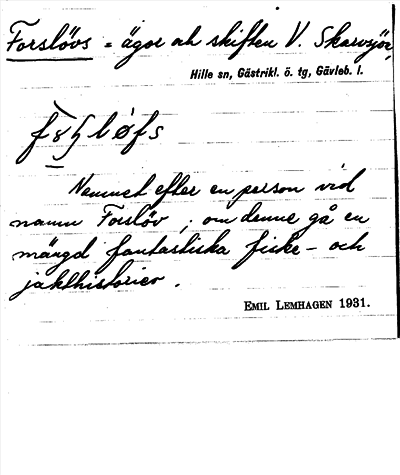 Forslövs = ägor och skiften V. Skarvsjön,
Hille sn, Gästrikl. ö. tg, Gävleb. l.
Namnet efter en person vid
namn Forslöv ; om denne gå en
mängd fantastiska fiske- och
jakthistorier.
EMIL LEMHAGEN 1931.